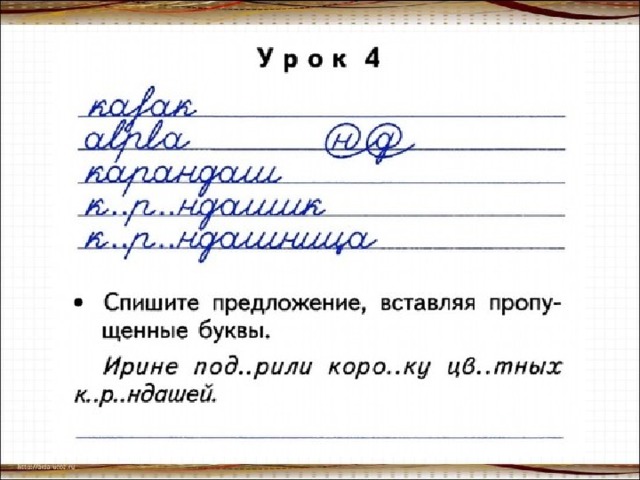 Урок 4
каſак
аſрſа н д
карандаш
к..р..ндашик
к..р..ндашница
• Спишите предложение, вставляя пропу-
щенные буквы.
Ирине под..рили коро..ку цв..тных
к..р..ндашей.